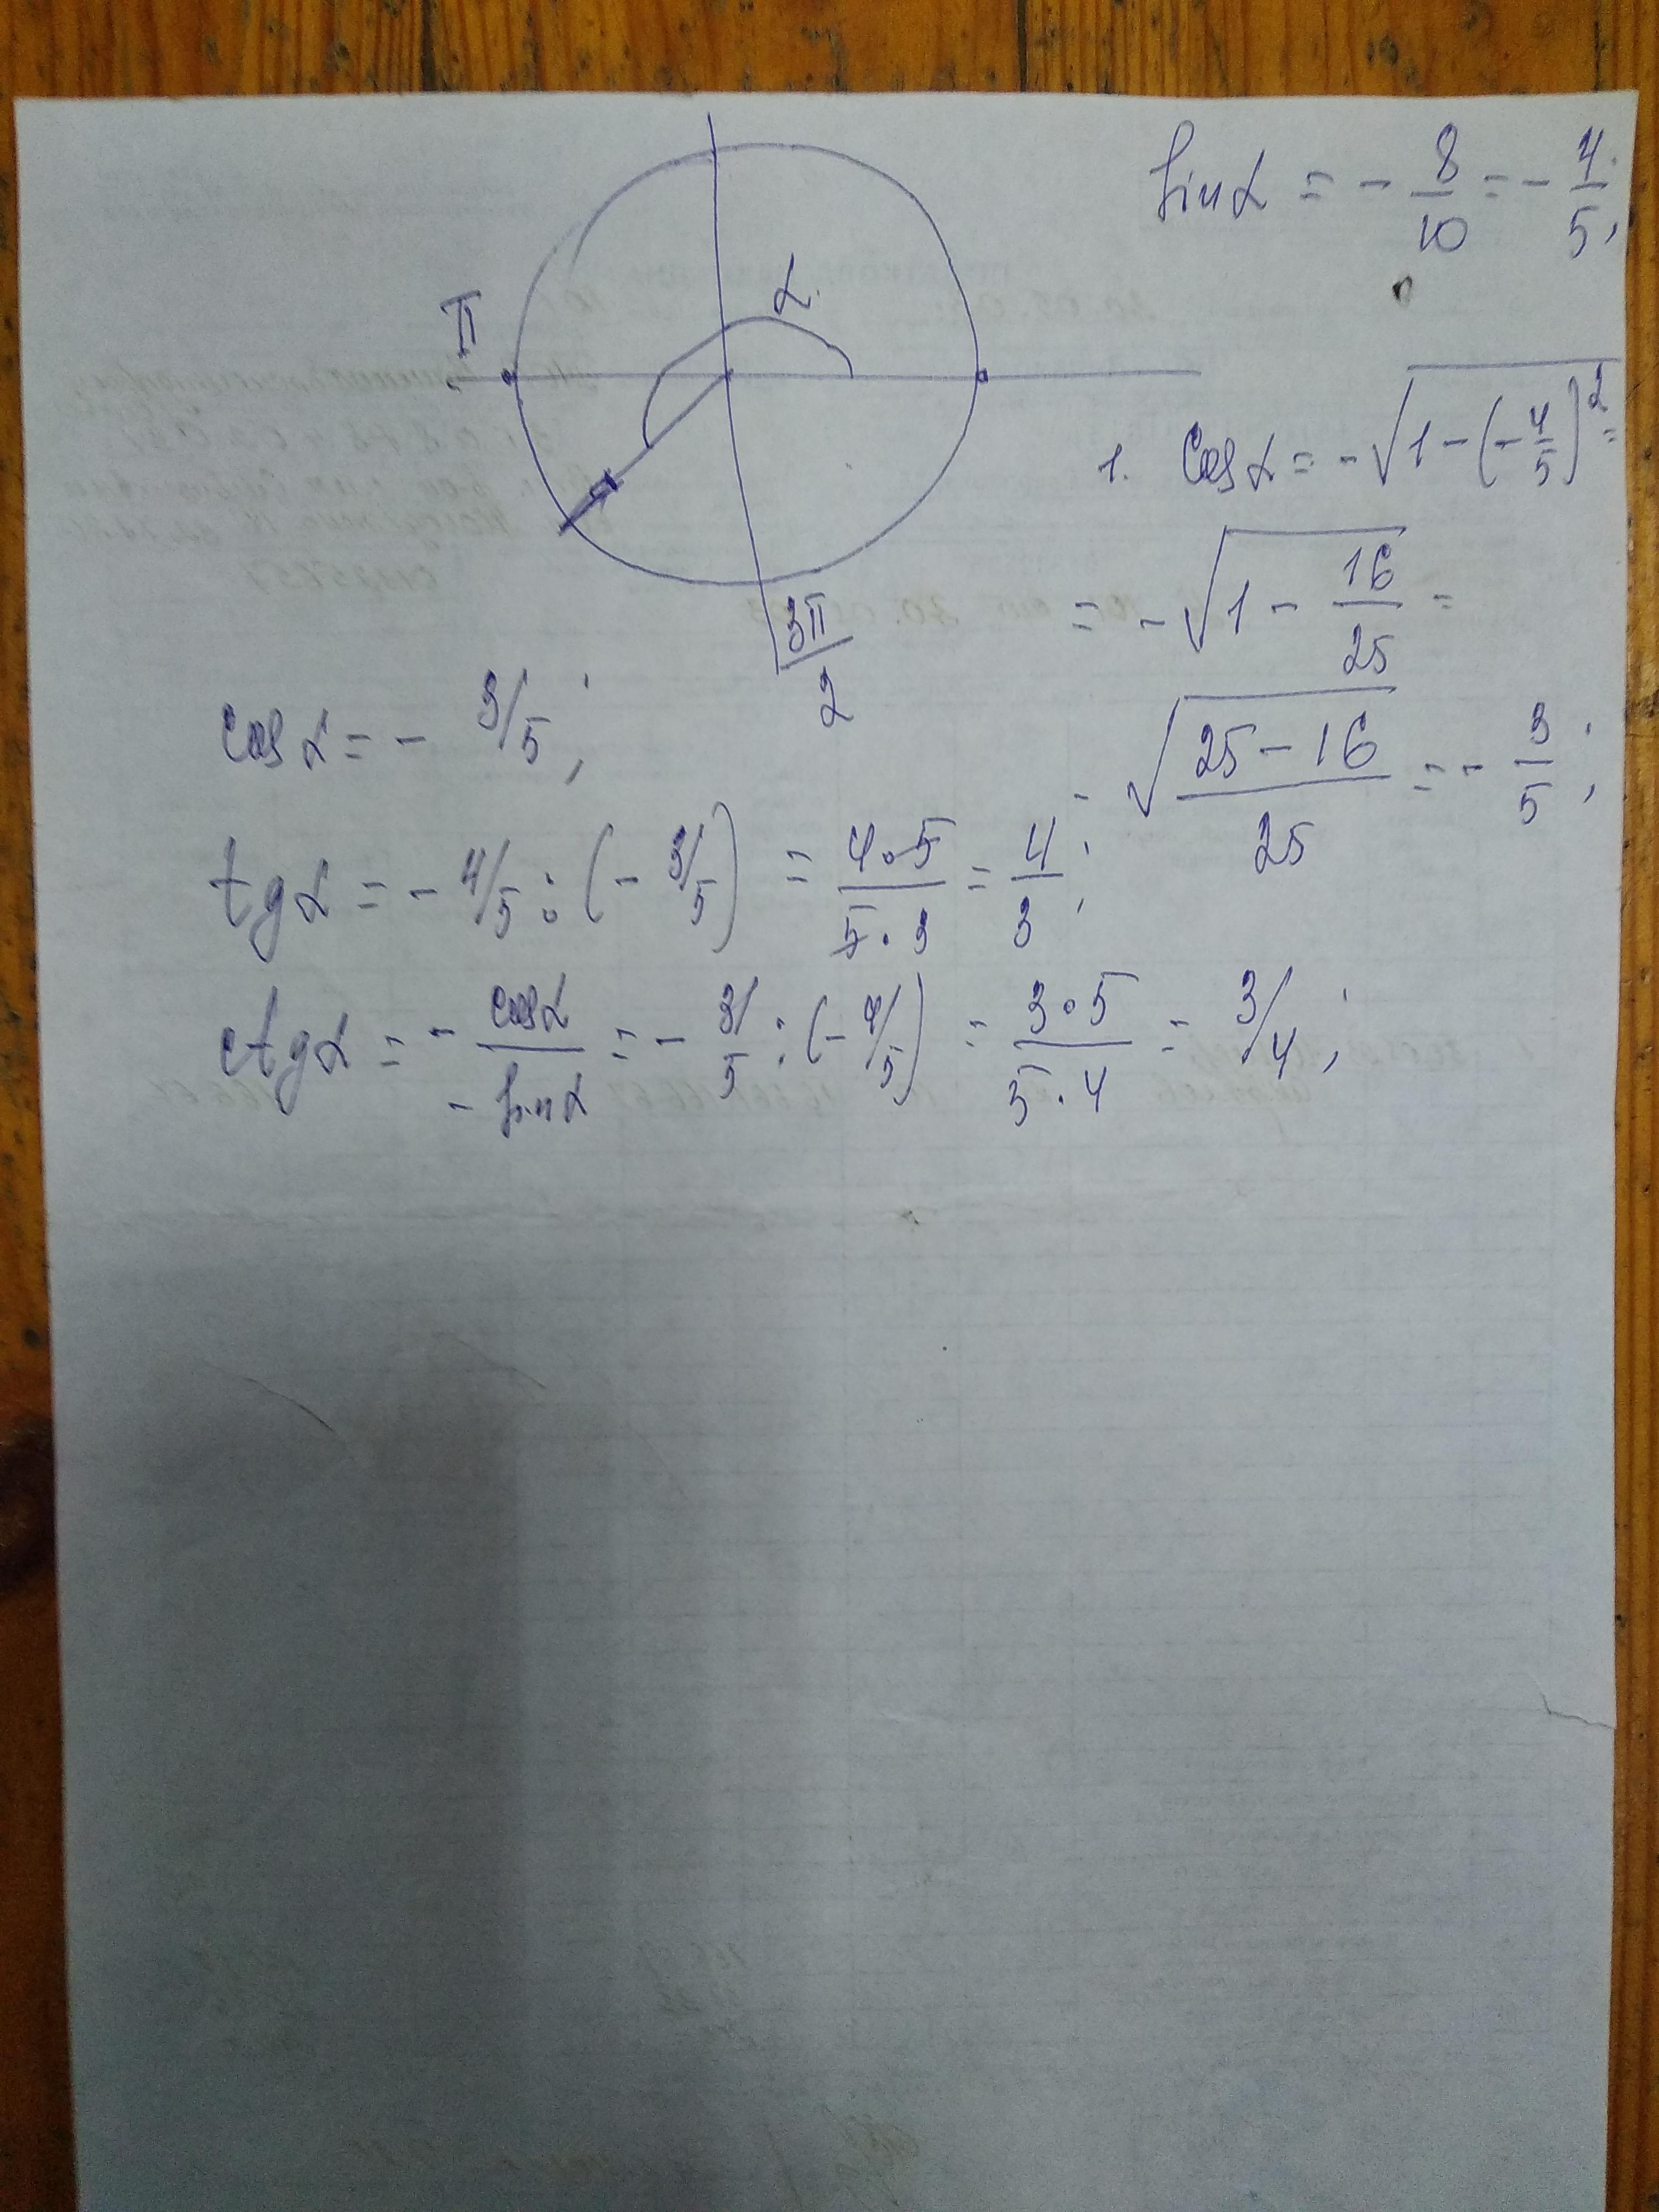 sin α = - 8/10 = - 4/5;
α
π
3π/2
1. cos α = - √(1 - (- 4/5)²) =
= - √(1 - 16/25) =
- √((25 - 16)/25) = - 3/5;
cos α = - 3/5;
tg α = - 4/5 : (- 3/5) = (4·5)/(5·3) = 4/3;
ctg α = (- cos α)/(- sin α) = - 3/5 : (- 4/5) = (3·5)/(5·4) = 3/4;